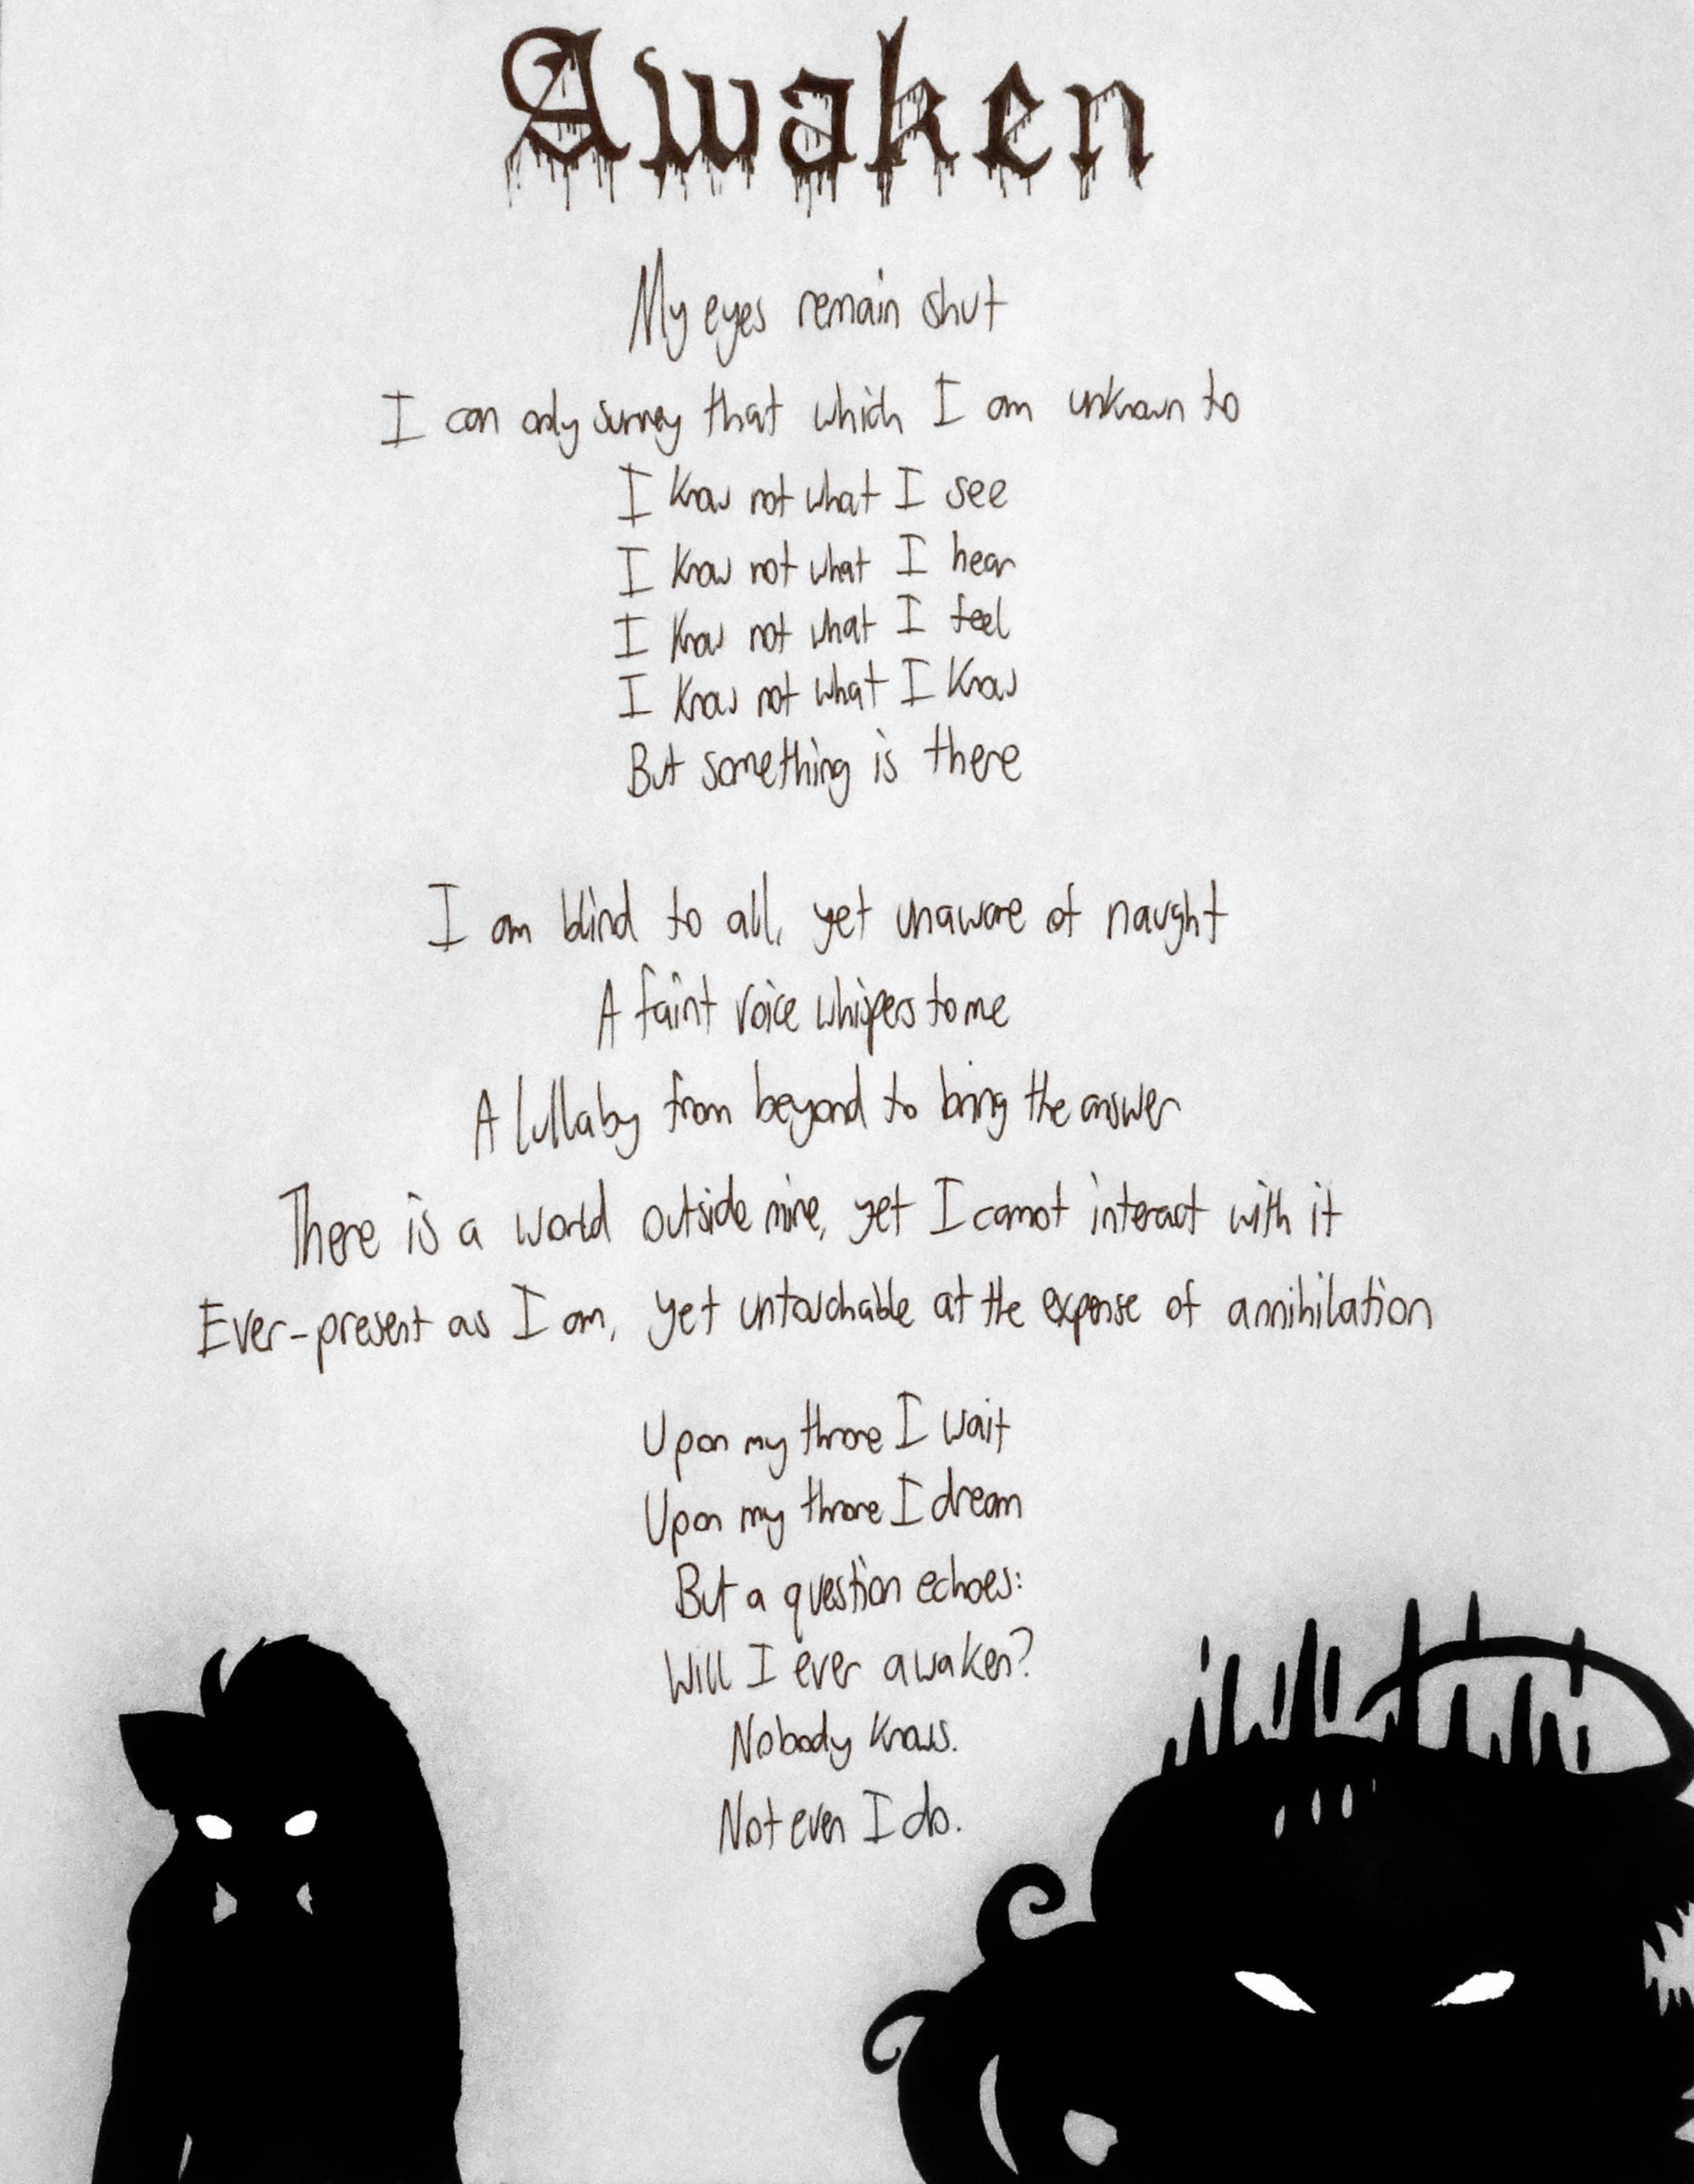 Awaken
My eyes remain shut
I can only survey that which I am unknown to
I know not what I see
I know not what I hear
I know not what I feel
I know not what I know
But something is there
I am blind to all, yet unaware of naught
A faint voice whispers to me
A lullaby from beyond to bring the answer
There is a world outside mine, yet I cannot interact with it
Ever-present as I am, yet untouchable at the expense of annihilation
Upon my throne I wait
Upon my throne I dream
But a question echoes:
Will I ever awaken?
Nobody knows.
Not even I do.